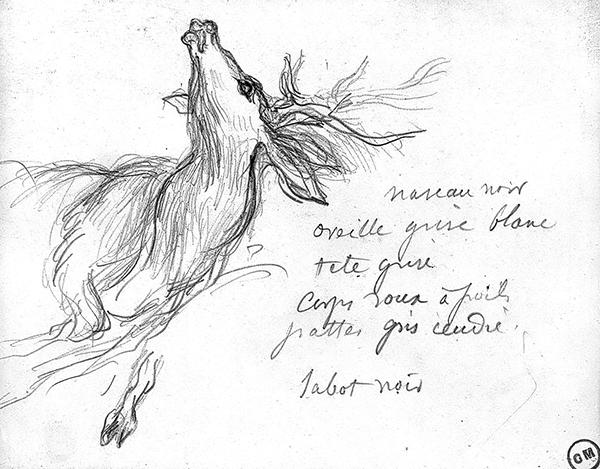 naseau noir
oreille grise blanc
tete grise
Corps roux à poils
pattes gris cendré.
Sabot noir
GM